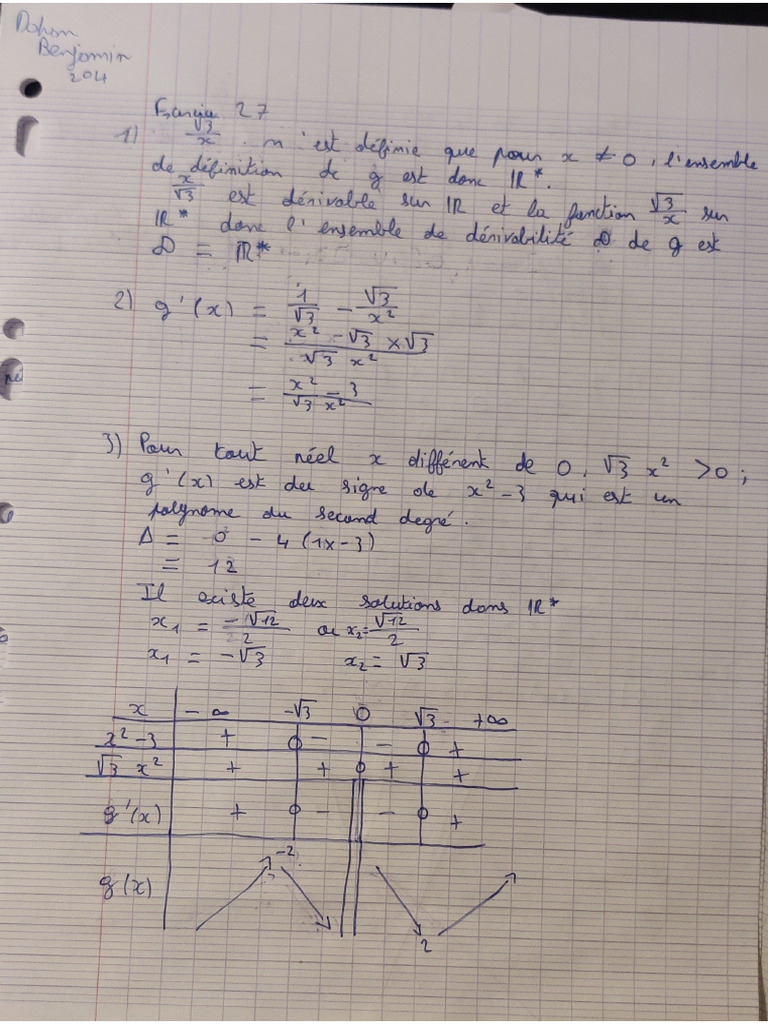 Benjamin
204
27
1) √3/x n'est définie que pour x ≠ 0, l'ensemble
de définition de g est donc ℝ*.
x/√3 est dérivable sur ℝ et la fonction √3/x sur
ℝ* donc l'ensemble de dérivabilité D de g est
D = ℝ*
2) g'(x) = 1/√3 - √3/x²
= x² - √3 × √3 / √3 x²
= x² - 3 / √3 x²
3) Pour tout réel x différent de 0, √3 x² > 0 ;
g'(x) est du signe de x² - 3 qui est un
polynome du second degré.
Δ = 0 - 4 (1x - 3)
= 12
Il existe deux solutions dans ℝ*
x₁ = -√12/2 ou x₂ = √12/2
x₁ = -√3 x₂ = √3
x -∞ -√3 0 √3 +∞
x² - 3 + 0 - - 0 +
√3 x² + + 0 + +
g'(x) + 0 - - 0 +
-2
g(x)
2